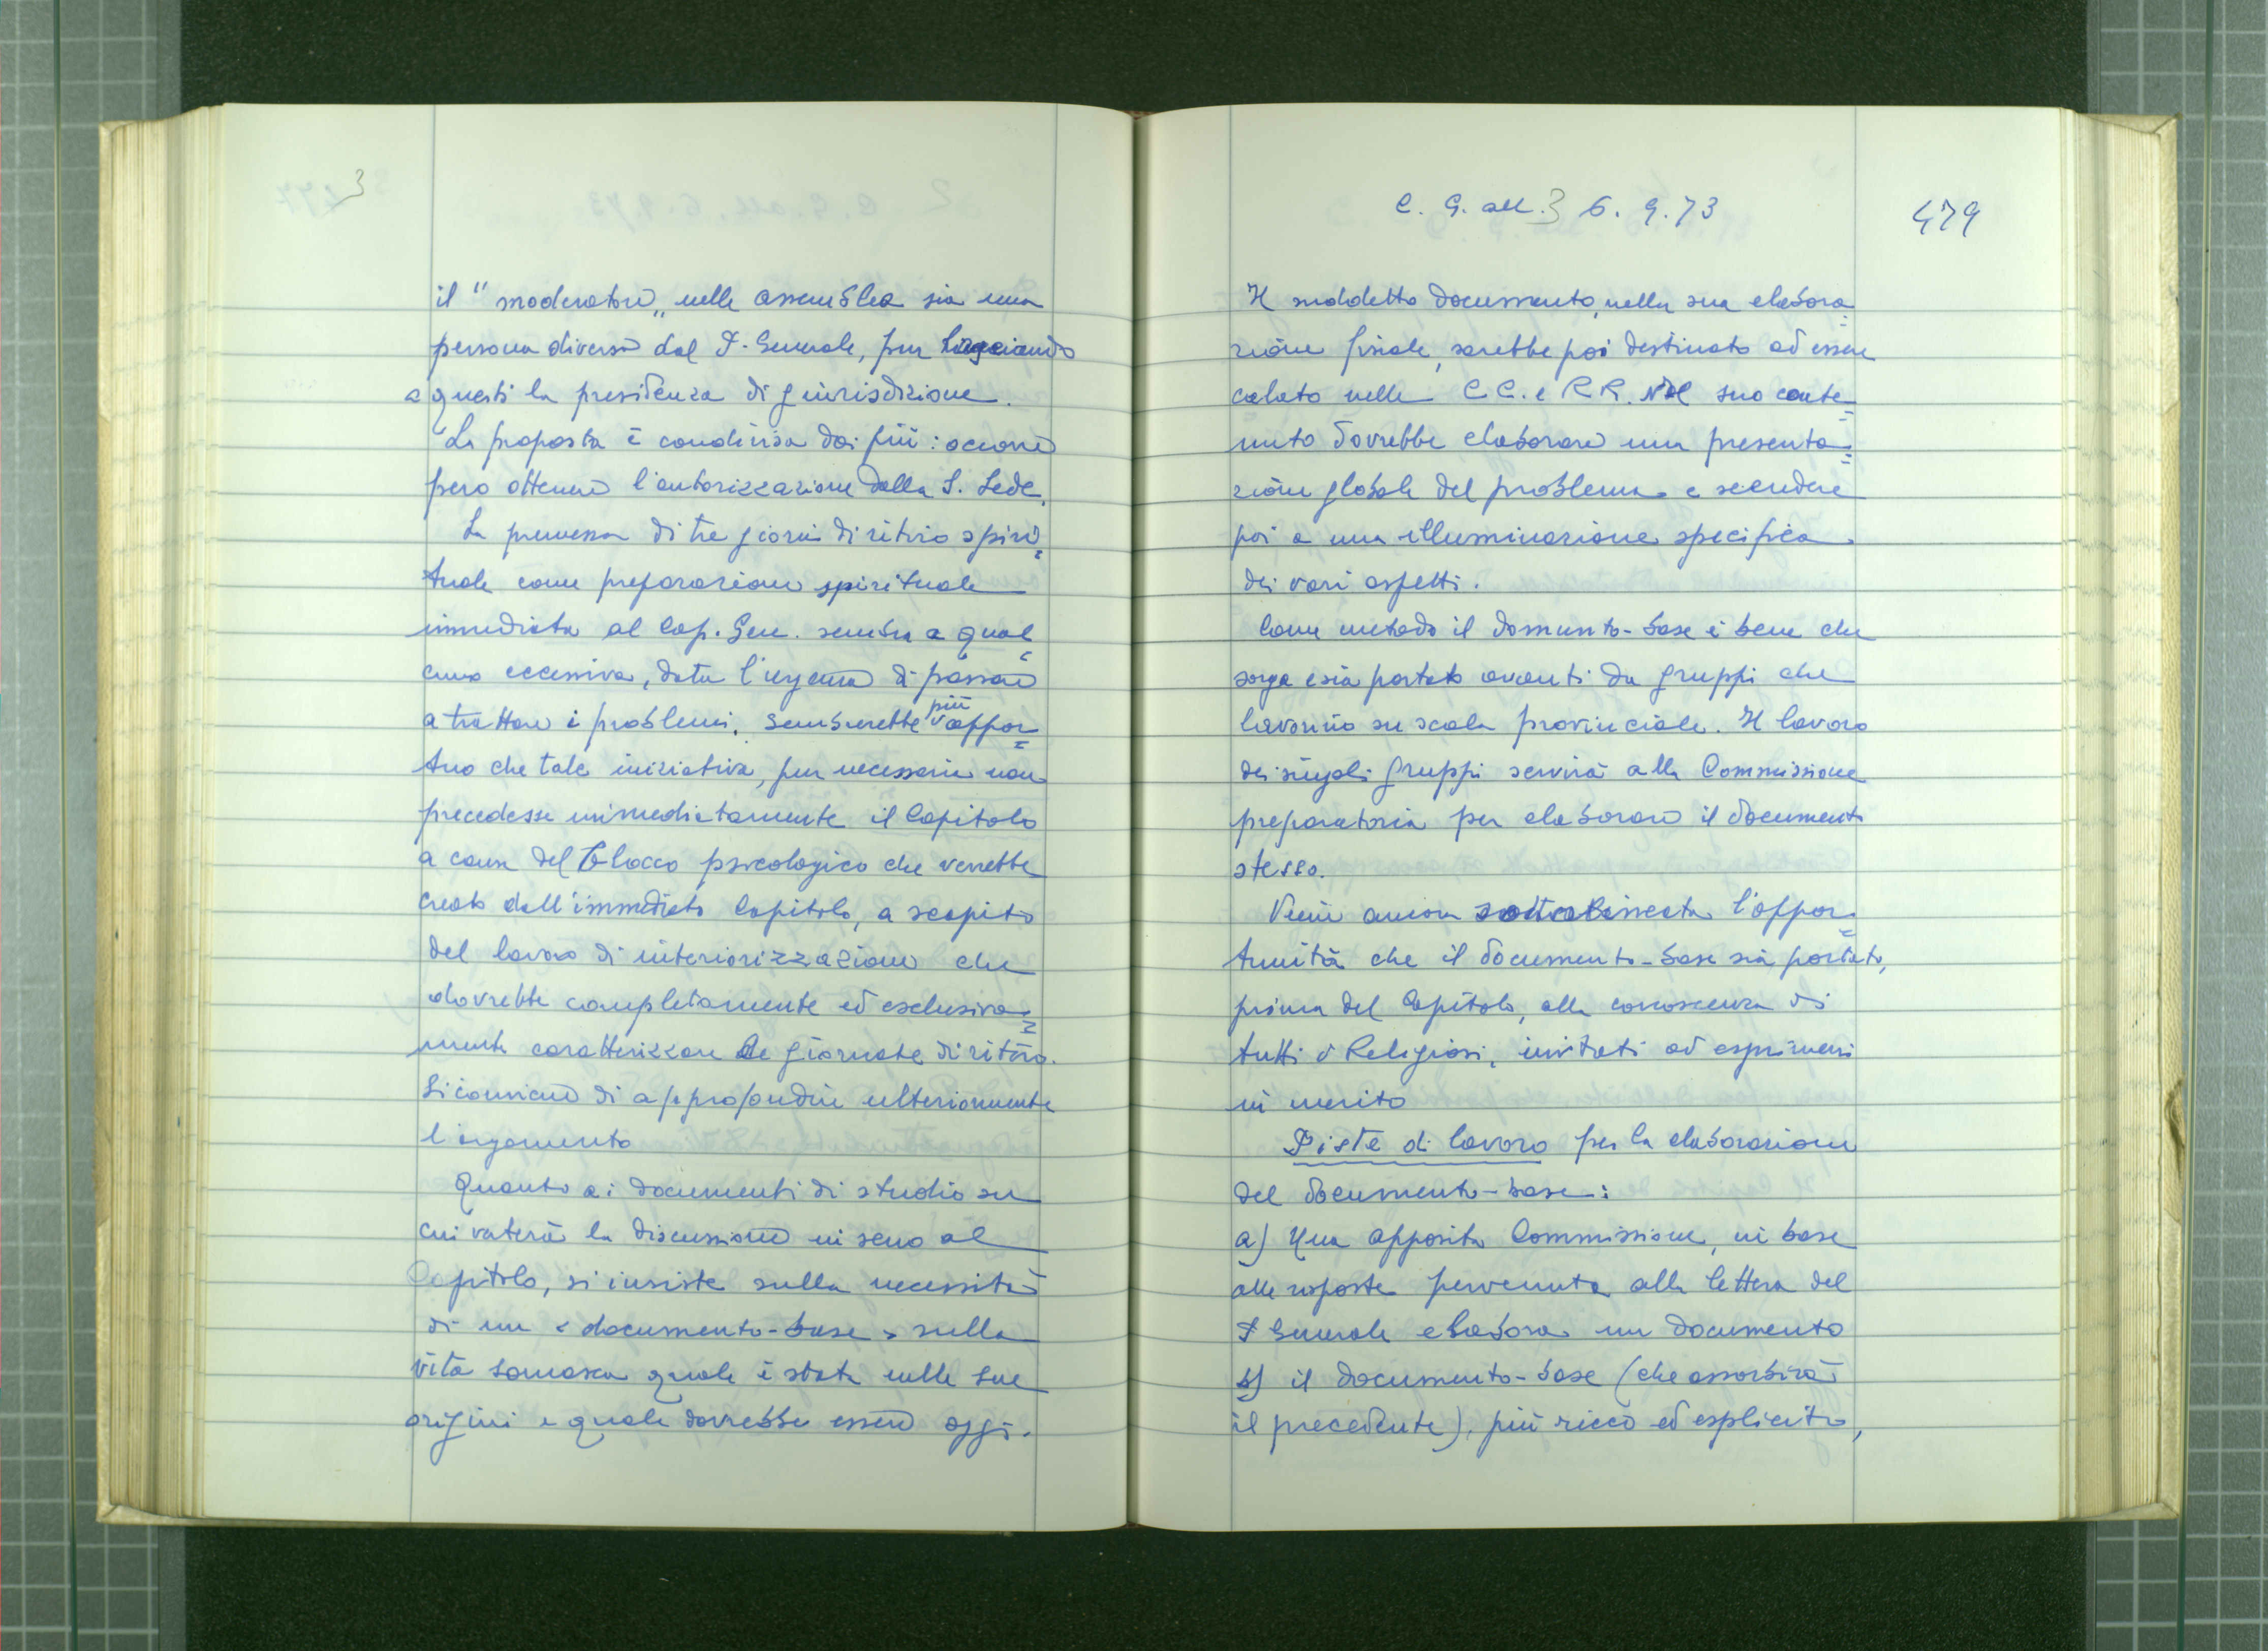 3
il "moderatore„ nelle assemblea sia una
persona diversa dal P. Generale, pur lasciando
a questi la presidenza di giurisdizione.
La proposta è condivisa dai più: occorre
pero ottenere l'autorizzazione dalla S. Sede.
La premessa di tre giorni di ritiro spiri=
tuale come preparazione spirituale
immediata al Cap. Gen. sembra a qual=
cuno eccessiva, data l'urgenza di passare
a trattare i problemi. Sembrerebbe più oppor=
tuno che tale iniziativa, pur necessaria non
precedesse immediatamente il Capitolo
a causa del blocco psicologico che verrebbe
creato dall'immediato Capitolo, a scapito
del lavoro di interiorizzazione che
dovrebbe completamente ed esclusiva=
mente caratterizzare le giornate di ritiro.
Si conviene di approfondire ulteriormente
l'argomento
Quanto ai documenti di studio su
cui verterà la discussione in seno al
Capitolo, si insiste sulla necessità
di un «documento-base» sulla
vita somasca quale è stata nelle sue
origini e quale dovrebbe essere oggi.
C. G. all. 3 6. 9. 73
479
Il suddetto documento, nella sua elabora=
zione finale, sarebbe poi destinato ad essere
calato nelle CC. e RR. Nel suo conte=
nuto dovrebbe elaborare una presenta=
zione globale del problema e scendere
poi a una illuminazione specifica
dei vari aspetti.
Come metodo il domunto-base è bene che
sorga e sia portato avanti da gruppi che
lavorino su scala provinciale. Il lavoro
dei singoli gruppi servirà alla Commissione
preparatoria per elaborare il documento
stesso.
Viene ancora sottolineata l'oppor=
tunità che il documento-base sia portato,
prima del Capitolo, alla conoscenza di
tutti i Religiosi, invitati ad esprimersi
in merito
Piste di lavoro per la elaborazione
del documento-base:
a) Una apposita Commissione, in base
alle risposte pervenute alla lettera del
P Generale elabora un documento
b) il documento-base (che assorbirà
il precedente), più ricco ed esplicito,